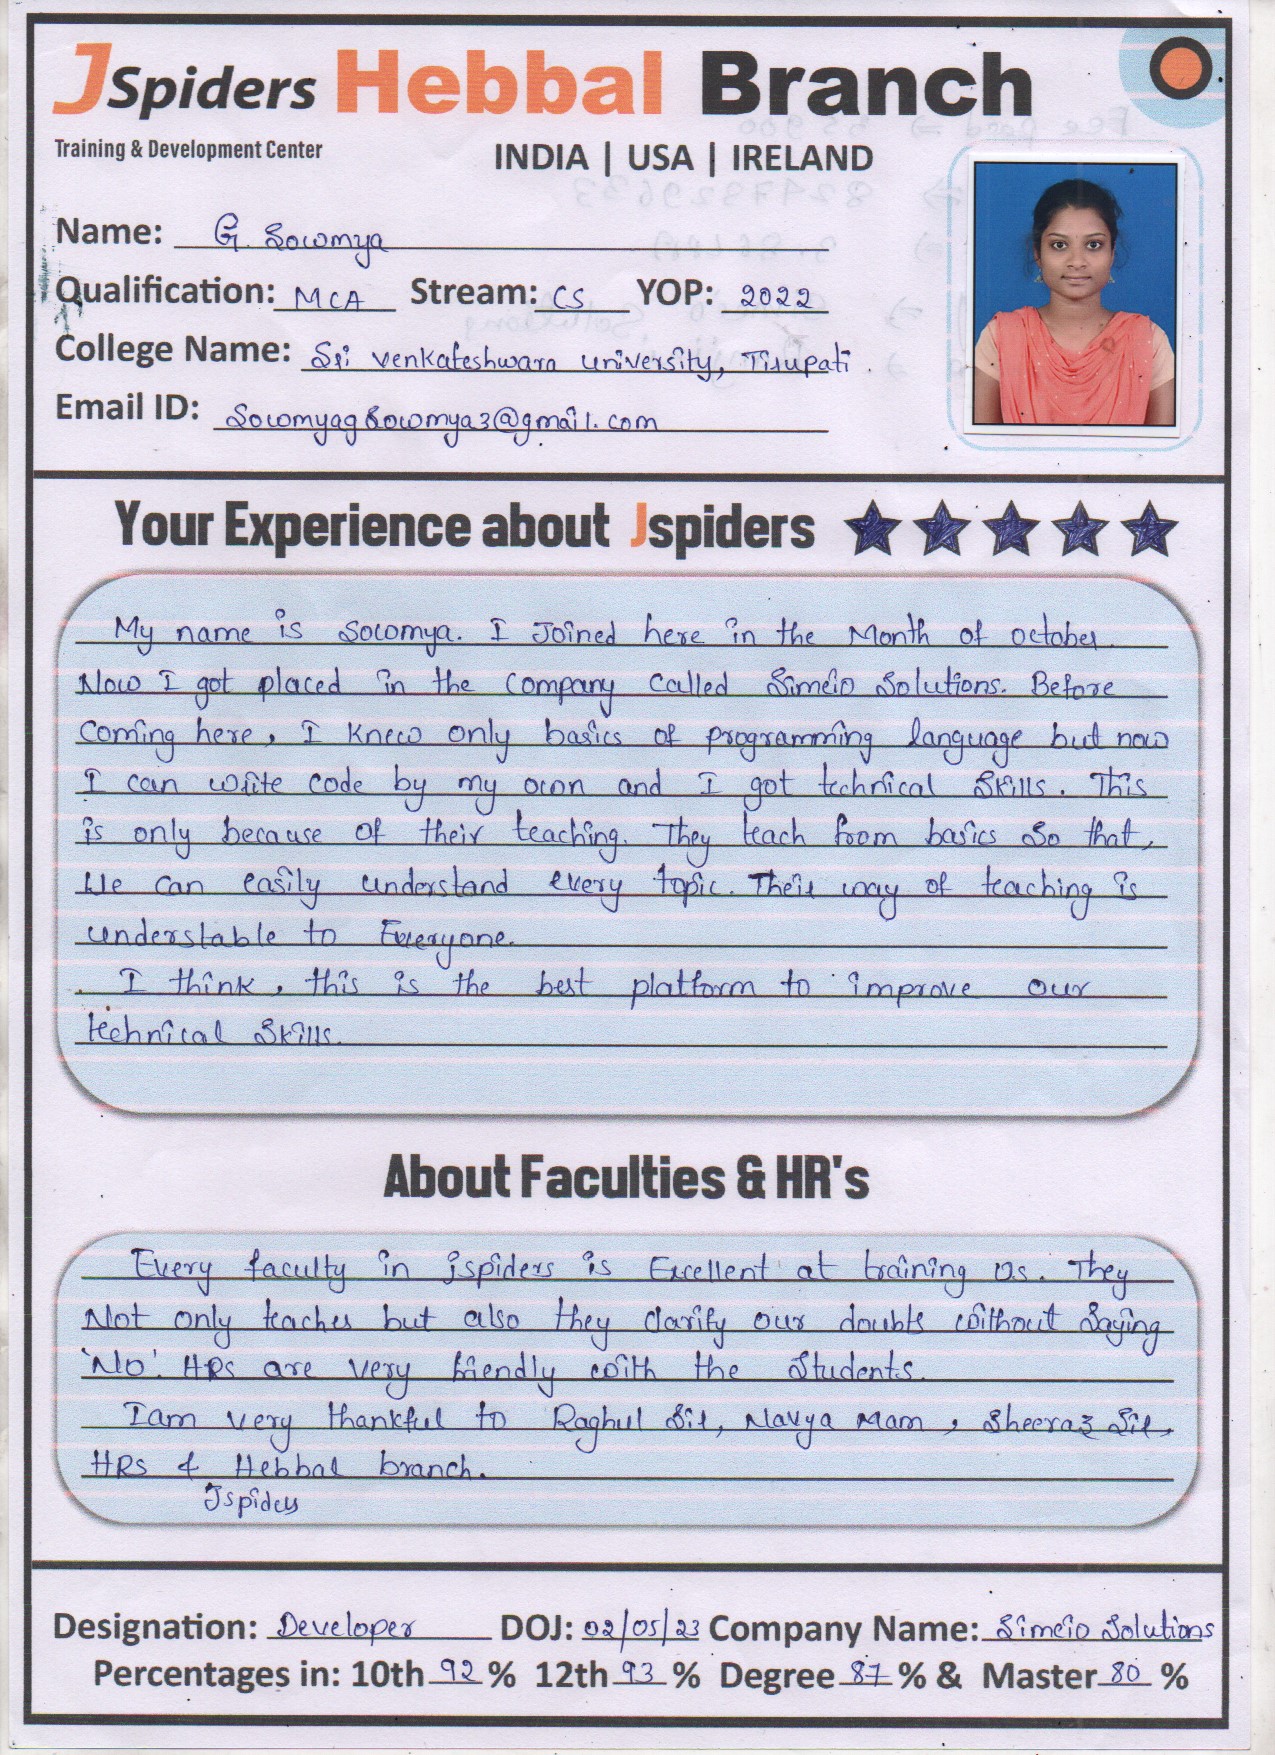 JSpiders Hebbal Branch
Training & Development Center
INDIA | USA | IRELAND
Name: G. Sowmya
Qualification: MCA Stream: CS YOP: 2022
College Name: Sri Venkateshwara University, Tirupati.
Email ID: Sowmyagsowmya3@gmail.com
Your Experience about Jspiders
My name is Sowmya. I Joined here in the Month of october.
Now I got placed in the company called Simeio Solutions. Before
Coming here, I knew only basics of programming language but now
I can write code by my own and I got technical Skills. This
is only because of their teaching. They teach from basics so that,
We can easily understand every topic. Their way of teaching is
understable to Everyone.
I think, this is the best platform to improve our
technical Skills.
About Faculties & HR's
Every faculty in jspiders is Excellent at training us. They
Not only teaches but also they clarify our doubts without Saying
'No'. HRs are very friendly with the Students.
I am very thankful to Raghul Sir, Navya Mam, Sheeraz Sir,
HRs & Hebbal branch.
Jspiders
Designation: Developer DOJ: 02/05/23 Company Name: Simeio Solutions
Percentages in: 10th 92 % 12th 93 % Degree 87 % & Master 80 %